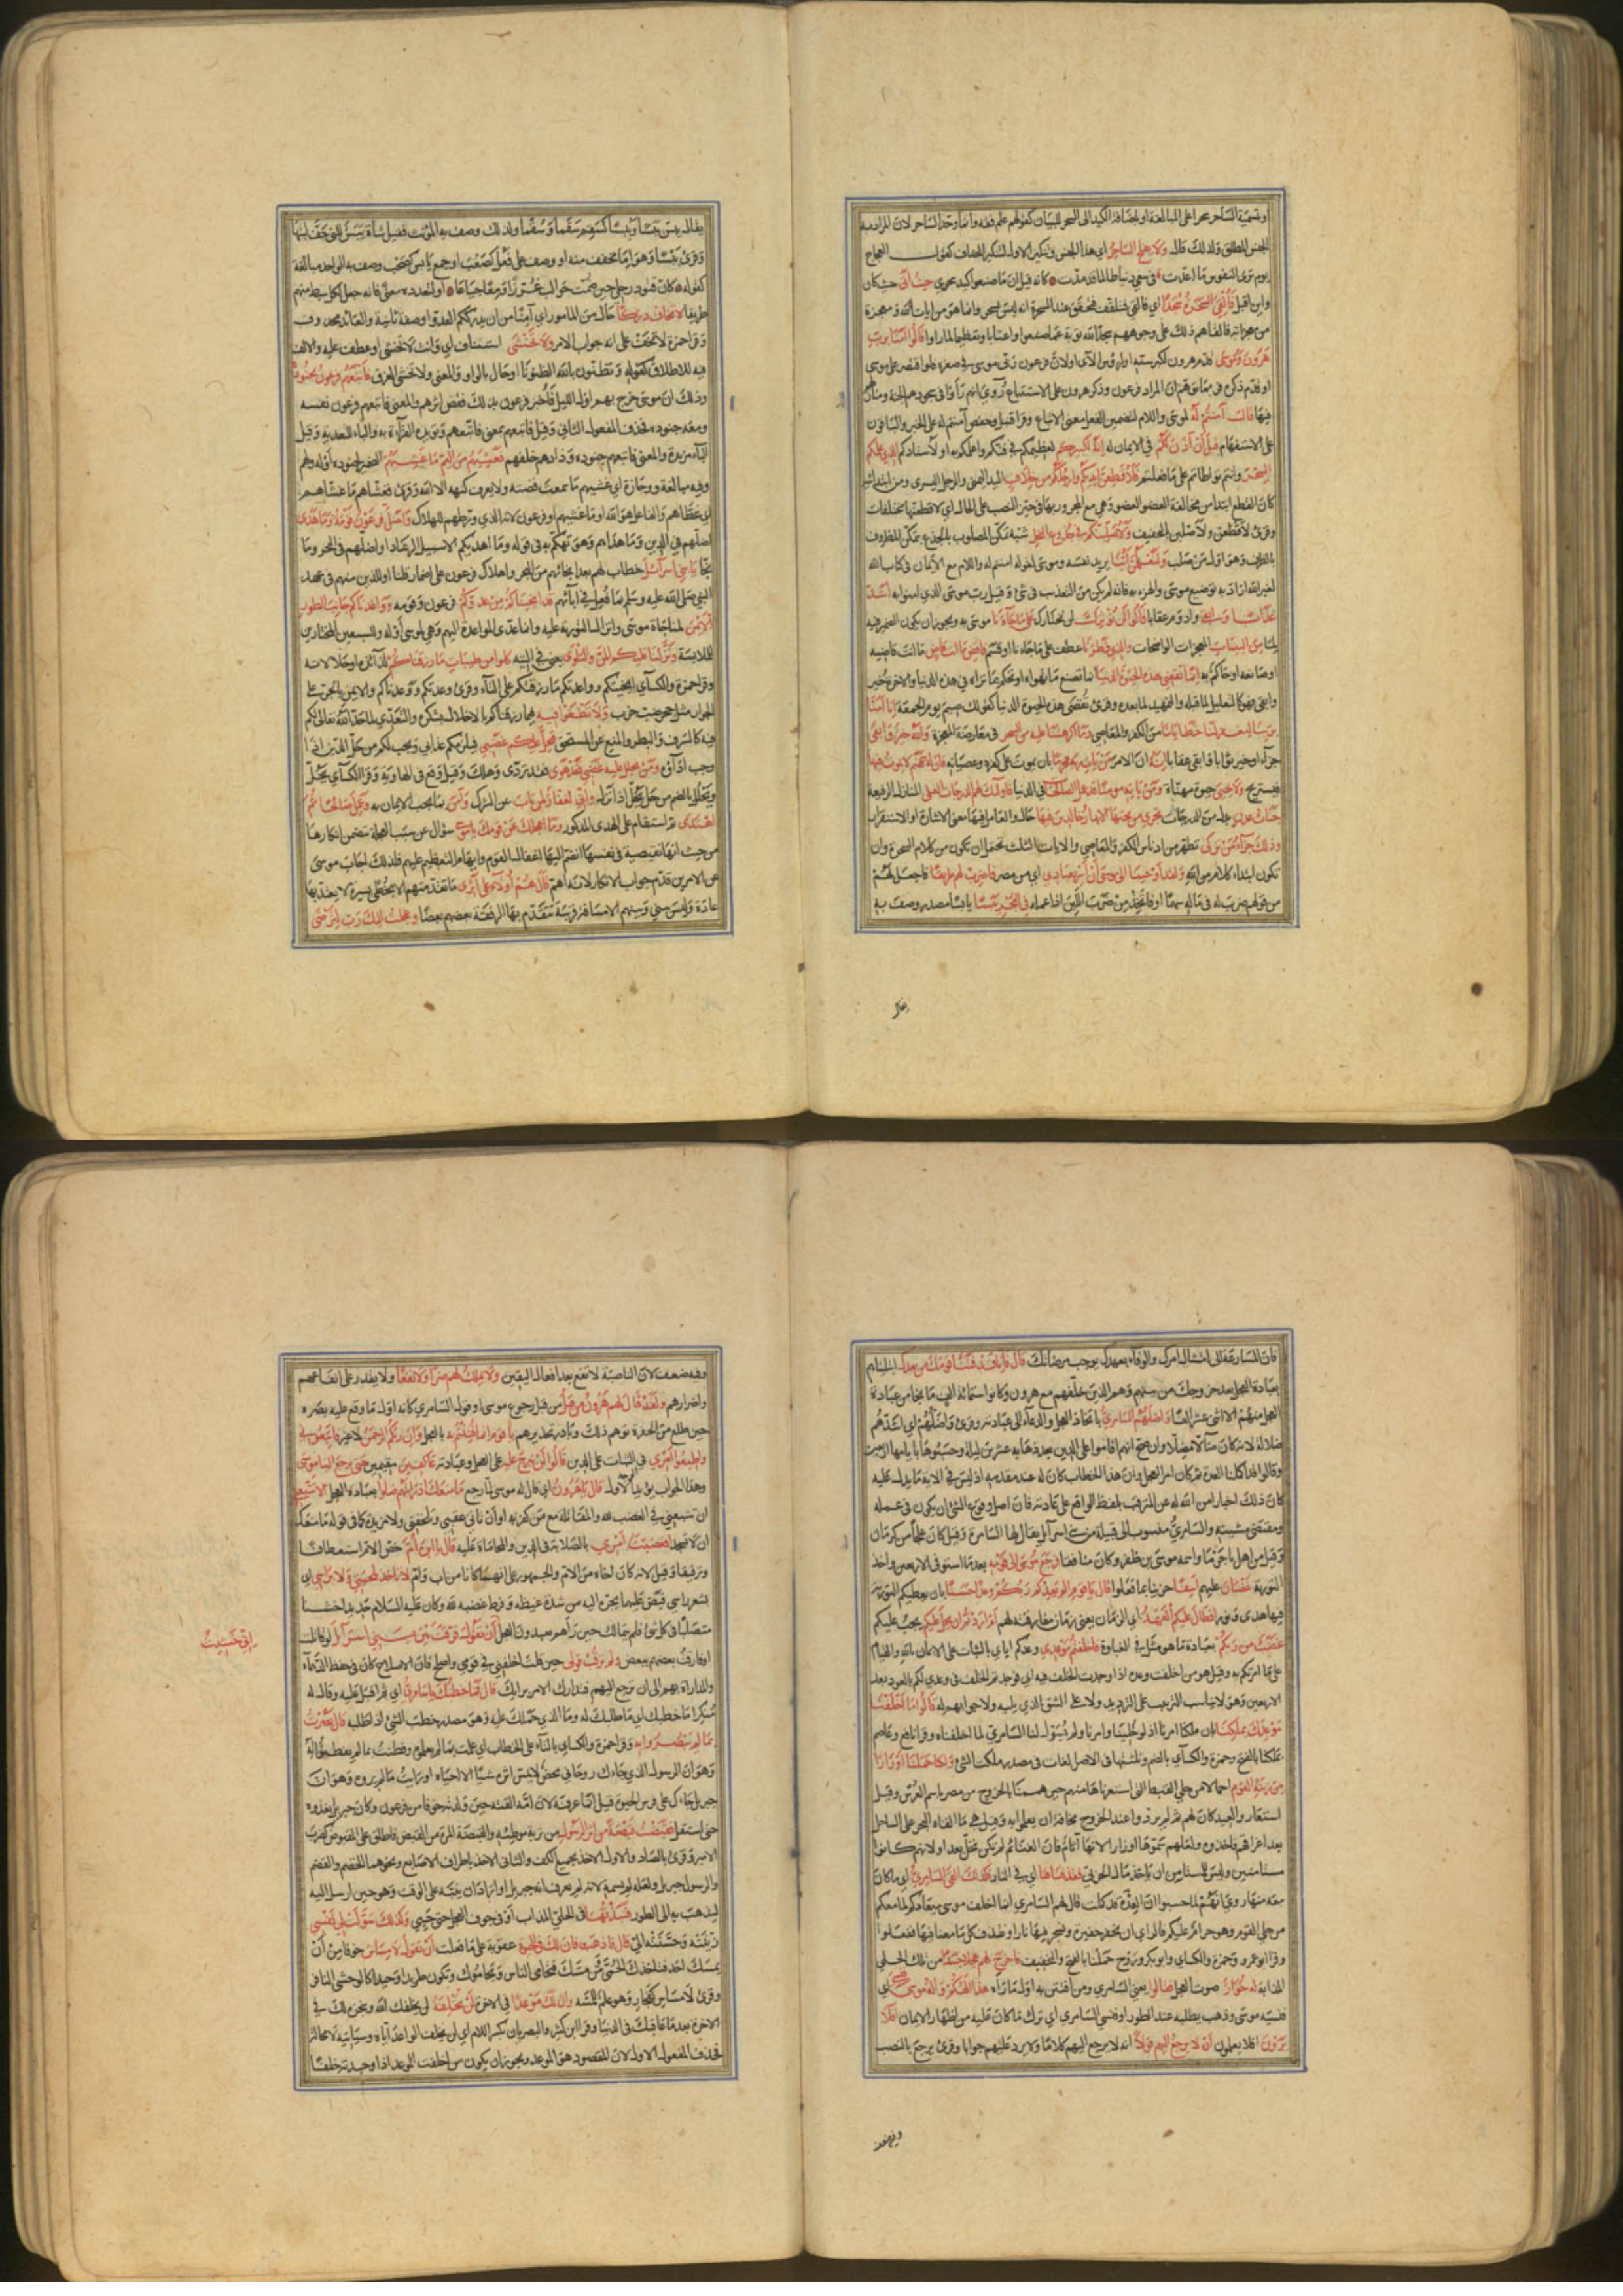 وتسمية الساحر سحرا على المبالغة او باضافة الكيد الى السحر للبيان كقولهم علم فقه وانما وحد الساحر لان المراد به
الجنس المطلق ولذلك قال ولا يفلح الساحر اي هذا الجنس وتنكير الاول لتنكير المضاف كقول العجاج
يوم ترى النفوس ما اعدت في سعي دنيا طالما قد مدت كانه قيل ان ما صنعوا كيد سحري حيث اتى حيث كان
واين اقبل فالقي السحرة سجدا اي فالقى فتلقف فتحقق عند السحرة انه ليس بسحر وانما هو من ايات الله ومعجزة
من معجزاته فالقاهم ذلك على وجوههم سجدا لله توبة عما صنعوا واعتابا وتعظيما لما راوا قالوا امنا برب
هرون وموسى قدم هرون لكبر سنه او لروس الآي او لان فرعون ربى موسى في صغره فلو اقتصر على موسى
او قدم ذكره فربما توهم ان المراد فرعون وذكر هرون على الاستتباع روي انهم راوا في سجودهم الجنة ومنازلهم
فيها قال آمنتم له لموسى واللام لتضمين الفعل معنى الاتباع وقرا قنبل وحفص آمنتم له على الخبر والباقون
على الاستفهام قبل ان آذن لكم في الايمان له انه لكبيركم لعظيمكم في فنكم واعلمكم به او لاستاذكم الذي علمكم
السحر وانتم تواطاتم على ما فعلتم فلاقطعن ايديكم وارجلكم من خلاف اليد اليمنى والرجل اليسرى ومن ابتدائية
كان القطع ابتدا من مخالفة العضو العضو وهي مع المجرور بها في حيز النصب على الحال اي لاقطعنها مختلفات
وقرئ لاقطعن ولاصلبن بالتخفيف ولاصلبنكم في جذوع النخل شبه تمكن المصلوب بالجذع بتمكن المظروف
بالظرف وهو اول من صلب ولتعلمن اينا يريد نفسه وموسى لقوله امنتم له واللام مع الايمان في كتاب الله
لغير الله اراد به توضيع موسى والهزء به فانه لم يكن من التعذيب في شئ وقيل رب موسى الذي امنوا به اشد
عذابا وابقى وادوم عقابا قالوا لن نؤثرك لن نختارك على ما جاءنا موسى به ويجوز ان يكون الضمير فيه
لما من البينات المعجزات الواضحات والذي فطرنا عطف على ما جاءنا او قسم فاقض ما انت قاض ما انت قاضيه
اي صانعه او حاكم به انما تقضي هذه الحيوة الدنيا انما تصنع ما تهواه او تحكم بما تراه في هذه الدنيا والاخرة خير
وابقى فهو كالتعليل لما قبله والتمهيد لما بعده وقرئ تقضى هذه الحيوة الدنيا كقولك صيم يوم الجمعة انا آمنا
بربنا ليغفر لنا خطايانا من الكفر والمعاصي وما اكرهتنا عليه من السحر في معارضة المعجزة والله خير وابقى
جزاء او خير ثوابا وابقى عقابا انه ان الامر من يات ربه مجرما بان يموت على كفره وعصيانه فان له جهنم لا يموت فيها
فيستريح ولا يحيى حيوة مهناة ومن ياته مومنا قد عمل الصالحات في الدنيا فاولئك لهم الدرجات العلى المنازل الرفيعة
جنات عدن بدل من الدرجات تجري من تحتها الانهار خالدين فيها حال والعامل فيها معنى الاشارة او الاستقرار
وذلك جزاء من تزكى تطهر من ادناس الكفر والمعاصي والايات الثلث تحتمل ان تكون من كلام السحرة وان
تكون ابتداء كلام من الله ولقد اوحينا الى موسى ان اسر بعبادي اي من مصر فاضرب لهم طريقا فاجعل لهم
من قولهم ضرب له في ماله سهما او فاتخذ من ضرب اللبن اذا عمله في البحر يبسا يابسا مصدر وصف به
يقال
يقال يبس يبسا ويبسا كسقم سقما وسقما ولذلك وصف به المؤنث فقيل شاة يبس للتي جف لبنها
وقرئ يبسا وهو اما مخفف منه او وصف على فعل كصعب او جمع يابس كصحب وصف به الواحد مبالغة
كقوله كان قتود رحلي حين ضمت حوالب غرزا ومعا جياعا او لتعدده معنى فانه جعل لكل سبط منهم
طريقا لا تخاف دركا حال من المامور اي آمنا من ان يدرككم العدو او صفة ثانية والعائد محذوف
وقرا حمزة لا تخف على انه جواب الامر ولا تخشى استيناف اي وانت لا تخشى او عطف عليه والالف
فيه للاطلاق كقوله وتظنون بالله الظنونا او حال بالواو والمعنى ولا تخشى الغرق فاتبعهم فرعون بجنوده
وذلك ان موسى خرج بهم اول الليل فاخبر فرعون بذلك فقص اثرهم والمعنى فاتبعهم فرعون نفسه
ومعه جنوده فحذف المفعول الثاني وقيل فاتبعهم بمعنى فاتبعهم ويؤيده القراءة به والباء للتعدية وقيل
الباء مزيدة والمعنى فاتبعهم جنوده وذادهم خلفهم فغشيهم من اليم ما غشيهم الضمير لجنوده او له ولهم
وفيه مبالغة ووجازة اي غشيهم ما سمعت قصته ولا يعرف كنهه الا الله وقرئ فغشاهم ما غشاهم
اي غطاهم والفاعل هو الله او ما غشيهم او فرعون لانه الذي ورطهم للهلاك واضل فرعون قومه وما هدى
اضلهم في الدين وما هداهم وهو تهكم به في قوله وما اهديكم الا سبيل الرشاد او اضلهم في البحر وما
نجا يا بني اسرائيل خطاب لهم بعد انجائهم من البحر واهلاك فرعون على اضمار قلنا او للذين منهم في عهد
النبي صلى الله عليه وسلم بما فعل في آبائهم قد انجيناكم من عدوكم فرعون وقومه وواعدناكم جانب الطور
الايمن لمناجاة موسى وانزال التورية عليه وانما عدى المواعدة اليهم وهي لموسى او له وللسبعين المختارين
للملابسة ونزلنا عليكم المن والسلوى يعني في التيه كلوا من طيبات ما رزقناكم لذائذه او حلالاته
وقرا حمزة والكسائي انجيتكم وواعدتكم ما رزقتكم على التاء وقرئ وعدتكم ووعدناكم والايمن بالجر على
الجوار مثل جحر ضب خرب ولا تطغوا فيه فيما رزقناكم بالاخلال بشكره والتعدي لما حد الله تعالى لكم
فيه كالسرف والبطر والمنع عن المستحق فيحل عليكم غضبي فيلزمكم عذابي ويجب لكم من حل الدين اذا
وجب اداؤه ومن يحلل عليه غضبي فقد هوى فقد تردى وهلك وقيل وقع في الهاوية وقرا الكسائي يحل
ويحلل بالضم من حل يحل اذا نزل واني لغفار لمن تاب عن الشرك وآمن بما يجب الايمان به وعمل صالحا ثم
اهتدى ثم استقام على الهدى المذكور وما اعجلك عن قومك يا موسى سؤال عن سبب العجلة يتضمن انكارها
من حيث انها نقيصة في نفسها انضم اليها اغفال القوم وايهام التعظيم عليهم فلذلك اجاب موسى
عن الامرين وقدم جواب الانكار لانه اهم قال هم اولاء على اثري ما تقدمتهم الا بخطى يسيرة لا يعتد بها
عادة وليس بيني وبينهم الا مسافة قريبة يتقدم بها الرفقة بعضهم بعضا وعجلت اليك رب لترضى
فان المسارعة الى امتثال امرك والوفاء بعهدك يوجب مرضاتك قال فانا قد فتنا قومك من بعدك ابتليناهم
بعبادة العجل بعد خروجك من بينهم وهم الذين خلفهم مع هرون وكانوا ستمائة الف ما نجا من عبادة
العجل منهم الا اثنى عشر الفا واضلهم السامري باتخاذ العجل والدعاء الى عبادته وقرئ واضلهم اي اشدهم
ضلالة لانه كان ضالا مضلا وان صح انهم اقاموا على الدين بعد ذهابه عشرين ليلة وحسبوها بايامها اربعين
وقالوا قد اكملنا العدة ثم كان امر العجل وان هذا الخطاب كان له عند مقدمه اذ ليس في الاية ما يدل عليه
كان ذلك اخبارا من الله له عن المترقب بلفظ الواقع على عادته فان اصل وقوع الشئ ان يكون في علمه
ومقتضى مشيته والسامري منسوب الى قبيلة من بني اسرائيل يقال لها السامرة وقيل كان علجا من كرمان
وقيل من اهل باجرما واسمه موسى بن ظفر وكان منافقا فرجع موسى الى قومه بعد ما استوفى الاربعين واخذ
التورية غضبان عليهم اسفا حزينا بما فعلوا قال يا قوم الم يعدكم ربكم وعدا حسنا بان يعطيكم التورية
فيها هدى ونور افطال عليكم العهد اي الزمان يعني زمان مفارقته لهم ام اردتم ان يحل عليكم يجب عليكم
غضب من ربكم بعبادة ما هو مثل في الغباوة فاخلفتم موعدي وعدكم اياي بالثبات على الايمان بالله والقيام
على ما امرتكم به وقيل هو من اخلفت وعده اذا وجدت الخلف فيه اي فوجدتم الخلف في وعدي لكم بالعود بعد
الاربعين وهو لا يناسب الترتيب على الترديد ولا على الشق الذي يليه ولا جوابهم له قالوا ما اخلفنا
موعدك بملكنا بان ملكنا امرنا اذ لو خلينا وامرنا ولم يسول لنا السامري لما اخلفناه وقرا نافع وعاصم
بملكنا بالفتح وحمزة والكسائي بالضم وثلثتها في الاصل لغات في مصدر ملكت الشئ ولكنا حملنا اوزارا
من زينة القوم احمالا من حلي القبط التي استعرناها منهم حين هممنا بالخروج من مصر باسم العرس وقيل
استعاروا لعيد كان لهم ثم لم يردوا عند الخروج مخافة ان يعلموا به وقيل هي ما القاه البحر على الساحل
بعد اغراقهم فاخذوه ولعلهم سموها اوزارا لانها آثام فان الغنائم لم يكن تحل بعد او لانهم كانوا
مستامنين وليس للمستامن ان ياخذ مال الحربي فقذفناها اي في النار فكذلك القى السامري اي ما كان
معه منها روي انهم لما حسبوا ان العدة قد كملت قال لهم السامري انما اخلف موسى ميعادكم لما معكم
من حلي القوم وهو حرام عليكم فالراي ان يحفر حفيرة ونسجر فيها نارا ونقذف كل ما معنا فيها ففعلوا
وقرا ابو عمرو وحمزة والكسائي وابو بكر وروح حملنا بالفتح والتخفيف فاخرج لهم عجلا جسدا من تلك الحلي
المذابة له خوار صوت العجل فقالوا يعني السامري ومن افتتن به اول ما راه هذا الهكم واله موسى فنسي اي
فنسيه موسى وذهب يطلبه عند الطور او فنسي السامري اي ترك ما كان عليه من اظهار الايمان افلا
يرون افلا يعلمون ان لا يرجع اليهم قولا انه لا يرجع اليهم كلاما ولا يرد عليهم جوابا وقرئ يرجع بالنصب
وفيه ضعف
وفيه ضعف لان ان الناصبة لا تقع بعد افعال اليقين ولا يملك لهم ضرا ولا نفعا ولا يقدر على انفاعهم
واضرارهم ولقد قال لهم هرون من قبل من قبل رجوع موسى او قول السامري كانه اول ما وقع عليه بصره
حين طلع من الحفرة توهم ذلك وبادر تحذيرهم يا قوم انما فتنتم به بالعجل وان ربكم الرحمن لا غير فاتبعوني
واطيعوا امري في الثبات على الدين قالوا لن نبرح عليه على العجل وعبادته عاكفين مقيمين حتى يرجع الينا موسى
وهذا الجواب يؤيد الوجه الاول قال يا هرون اي قال له موسى لما رجع ما منعك اذ رايتهم ضلوا بعبادة العجل الا تتبعن
ان تتبعني في الغضب لله والمقاتلة مع من كفر به او ان تاتي عقبي وتلحقني ولا مزيدة كما في قوله ما منعك
ان لا تسجد افعصيت امري بالصلابة في الدين والمحاماة عليه قال يا ابن ام خص الام استعطافا
وترقيقا وقيل لانه كان اخاه من الام والجمهور على انهما كانا من اب وام لا تاخذ بلحيتي ولا براسي اي
بشعر راسي قبض عليهما يجره اليه من شدة غيظه وفرط غضبه لله وكان عليه السلام حديدا خشنا
متصلبا في كل شئ فلم يتمالك حين رآهم يعبدون العجل اني خشيت ان تقول فرقت بين بني اسرائيل لو قاتلت
او فارقت بعضهم ببعض ولم ترقب قولي حين قلت اخلفني في قومي واصلح فان الاصلاح كان في حفظ الدهماء
والمداراة بهم الى ان ترجع اليهم فتدارك الامر برايك قال فما خطبك يا سامري اي ثم اقبل عليه وقال له
منكرا ما خطبك اي ما طلبك له وما الذي حملك عليه وهو مصدر خطب الشئ اذا طلبه قال بصرت
بما لم يبصروا به وقرا حمزة والكسائي بالتاء على الخطاب اي علمت بما لم يعلموه وفطنت بما لم يفطنوا له
وهو ان الرسول الذي جاءك روحاني محض لا يمس اثره شيئا الا احياه او رايت ما لم يروه وهو ان
جبريل جاءك على فرس الحيوة قيل انما عرفه لان امه القته حين ولدته خوفا من فرعون وكان جبريل يغذوه
حتى استقل فقبضت قبضة من اثر الرسول من تربة موطئه والقبضة المرة من القبض فاطلق على المقبوض كضرب
الامير وقرئ بالصاد والاول للاخذ بجميع الكف والثاني للاخذ باطراف الاصابع ونحوهما الخضم والقضم
والرسول جبريل ولعله لم يسمه لانه لم يعرف انه جبريل او اراد ان ينبه على الوقت وهو حين ارسل اليه
ليذهب به الى الطور فنبذتها في الحلي المذاب او في جوف العجل حتى حيي وكذلك سولت لي نفسي
زينته وحسنته الي قال فاذهب فان لك في الحيوة عقوبة على ما فعلت ان تقول لا مساس خوفا من ان
يمسك احد فتاخذك الحمى ومن مسك فتحامى الناس ويحاموك وتكون طريدا وحيدا كالوحشي النافر
وقرئ لا مساس كفجار وهو علم للمسة وان لك موعدا في الاخرة لن تخلفه لن يخلفك الله وينجزه لك في
الاخرة بعد ما عاقبك في الدنيا وقرا ابن كثير والبصريان بكسر اللام اي لن تخلف الواعد اياه وسياتيه لا محالة
فحذف المفعول الاول لان المقصود هو الموعد ويجوز ان يكون من اخلفت الموعد اذا وجدته خلفا
اني خشيت